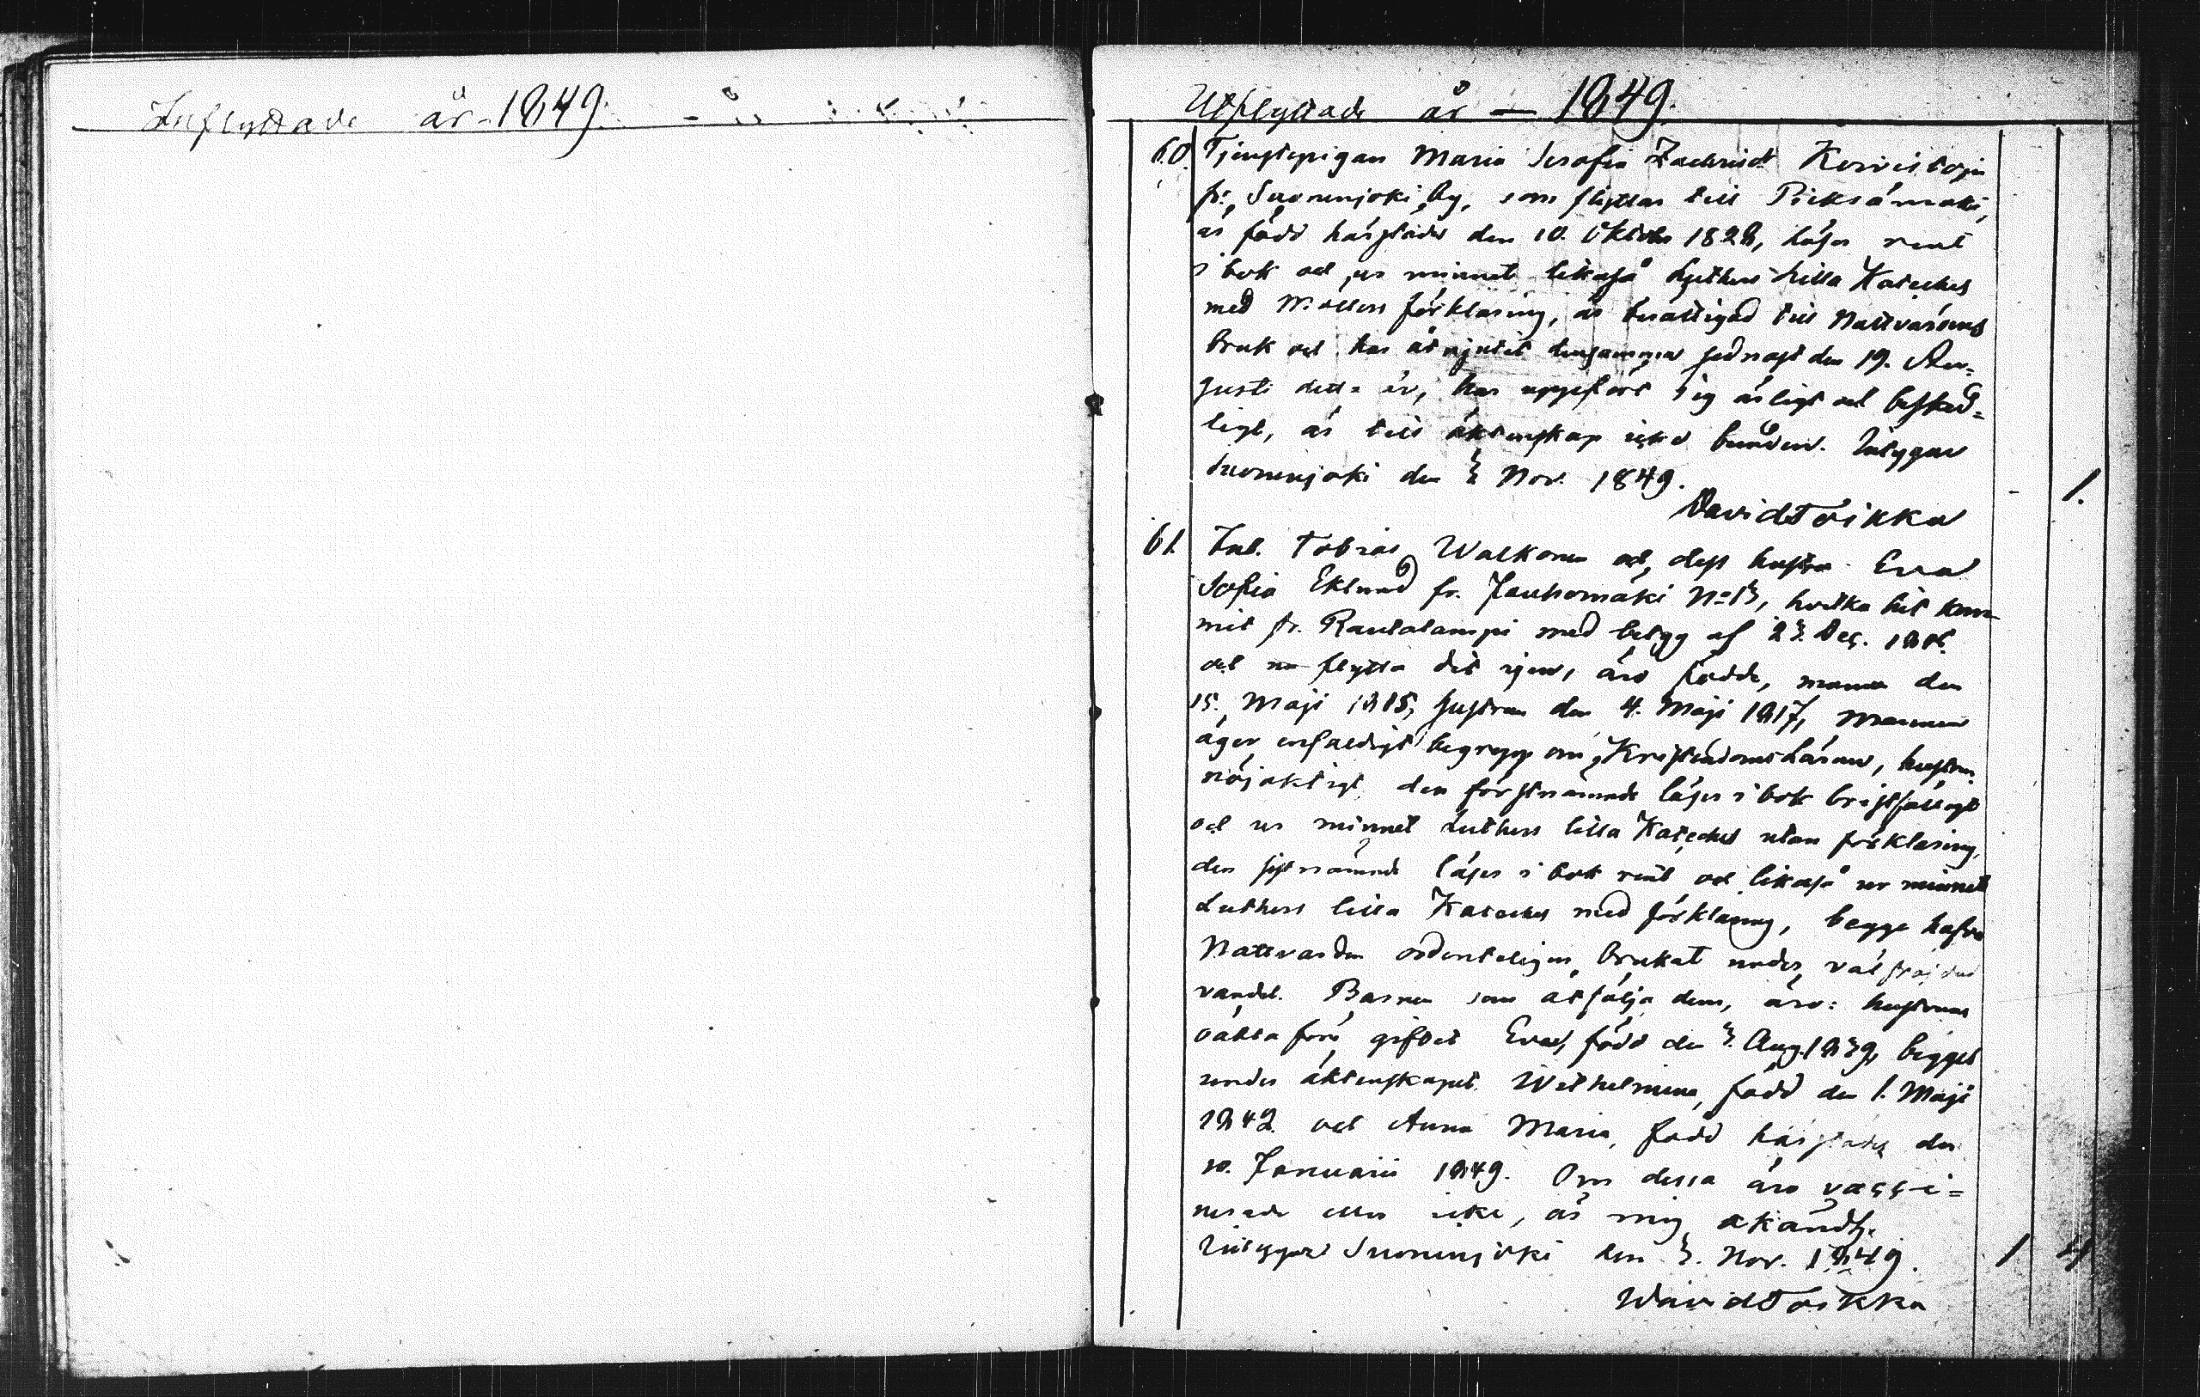 Inflyttade år - 1849.
Utflyttade år — 1849.
60. Tjenstepigan Maria Serafia Zachrisd:r Korvistoin
fr. Suonenjoki by, som flyttar till Pieksämäki,
är född härstädes den 10. Oktober 1828, läser rent
i bok och ur minnet likaså Luthers Lilla Kateches
med förklaring, är berättigad till Nattvardens
bruk och har åtnjutit densamma sednast den 19. Au=
gusti detta år, har uppfört sig ärligt och besked=
ligt, är till äktenskap icke bunden. Intygar
Suonenjoki den 3 Nov. 1849.
- 1.
David Toikka
61. Inh. Tobias Walkonen och dess hustru Eva
Sofia Eklund fr. Jauhomäki No 13, hvilka hit kom=
mit fr. Rautalampi med betyg af Dec.
och nu flytta dit igen, äro födde, mannen den
15. Maji 1815, hustrun den 4. Maji 1817, mannen
äger enfaldigt begrepp om Kristendoms Läran, hustrun
nöjaktigt, den förstnämnde läser i bok bristfälligt
och ur minnet Luthers lilla Kateches utan förklaring,
den sistnämnde läser i bok rent och likaså ur minnet
Luthers lilla Kateches med förklaring, begge hafva
Nattvarden ordenteligen brukat under välfräjdad
vandel. Barnen som åtfölja dem, äro: hustruns
oäkta före giftet Eva, född den 3. Aug. 1839, begges
under äktenskapet Wilhelmina, född den 1. Maji
1842 och Anna Maria, född härstädes den
10. Januarii 1849. Om dessa äro vacci=
nerade eller icke, är mig okändt.
Intygar Suonenjoki den 3. Nov. 1849.
1 4
David Toikka